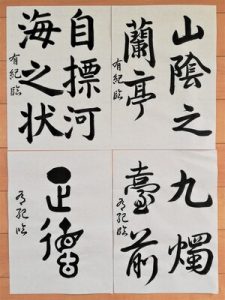 山陰之
蘭亭
有紀臨
自摽河
海之状
有紀臨
九燭
臺前
有紀臨
正德
有紀臨